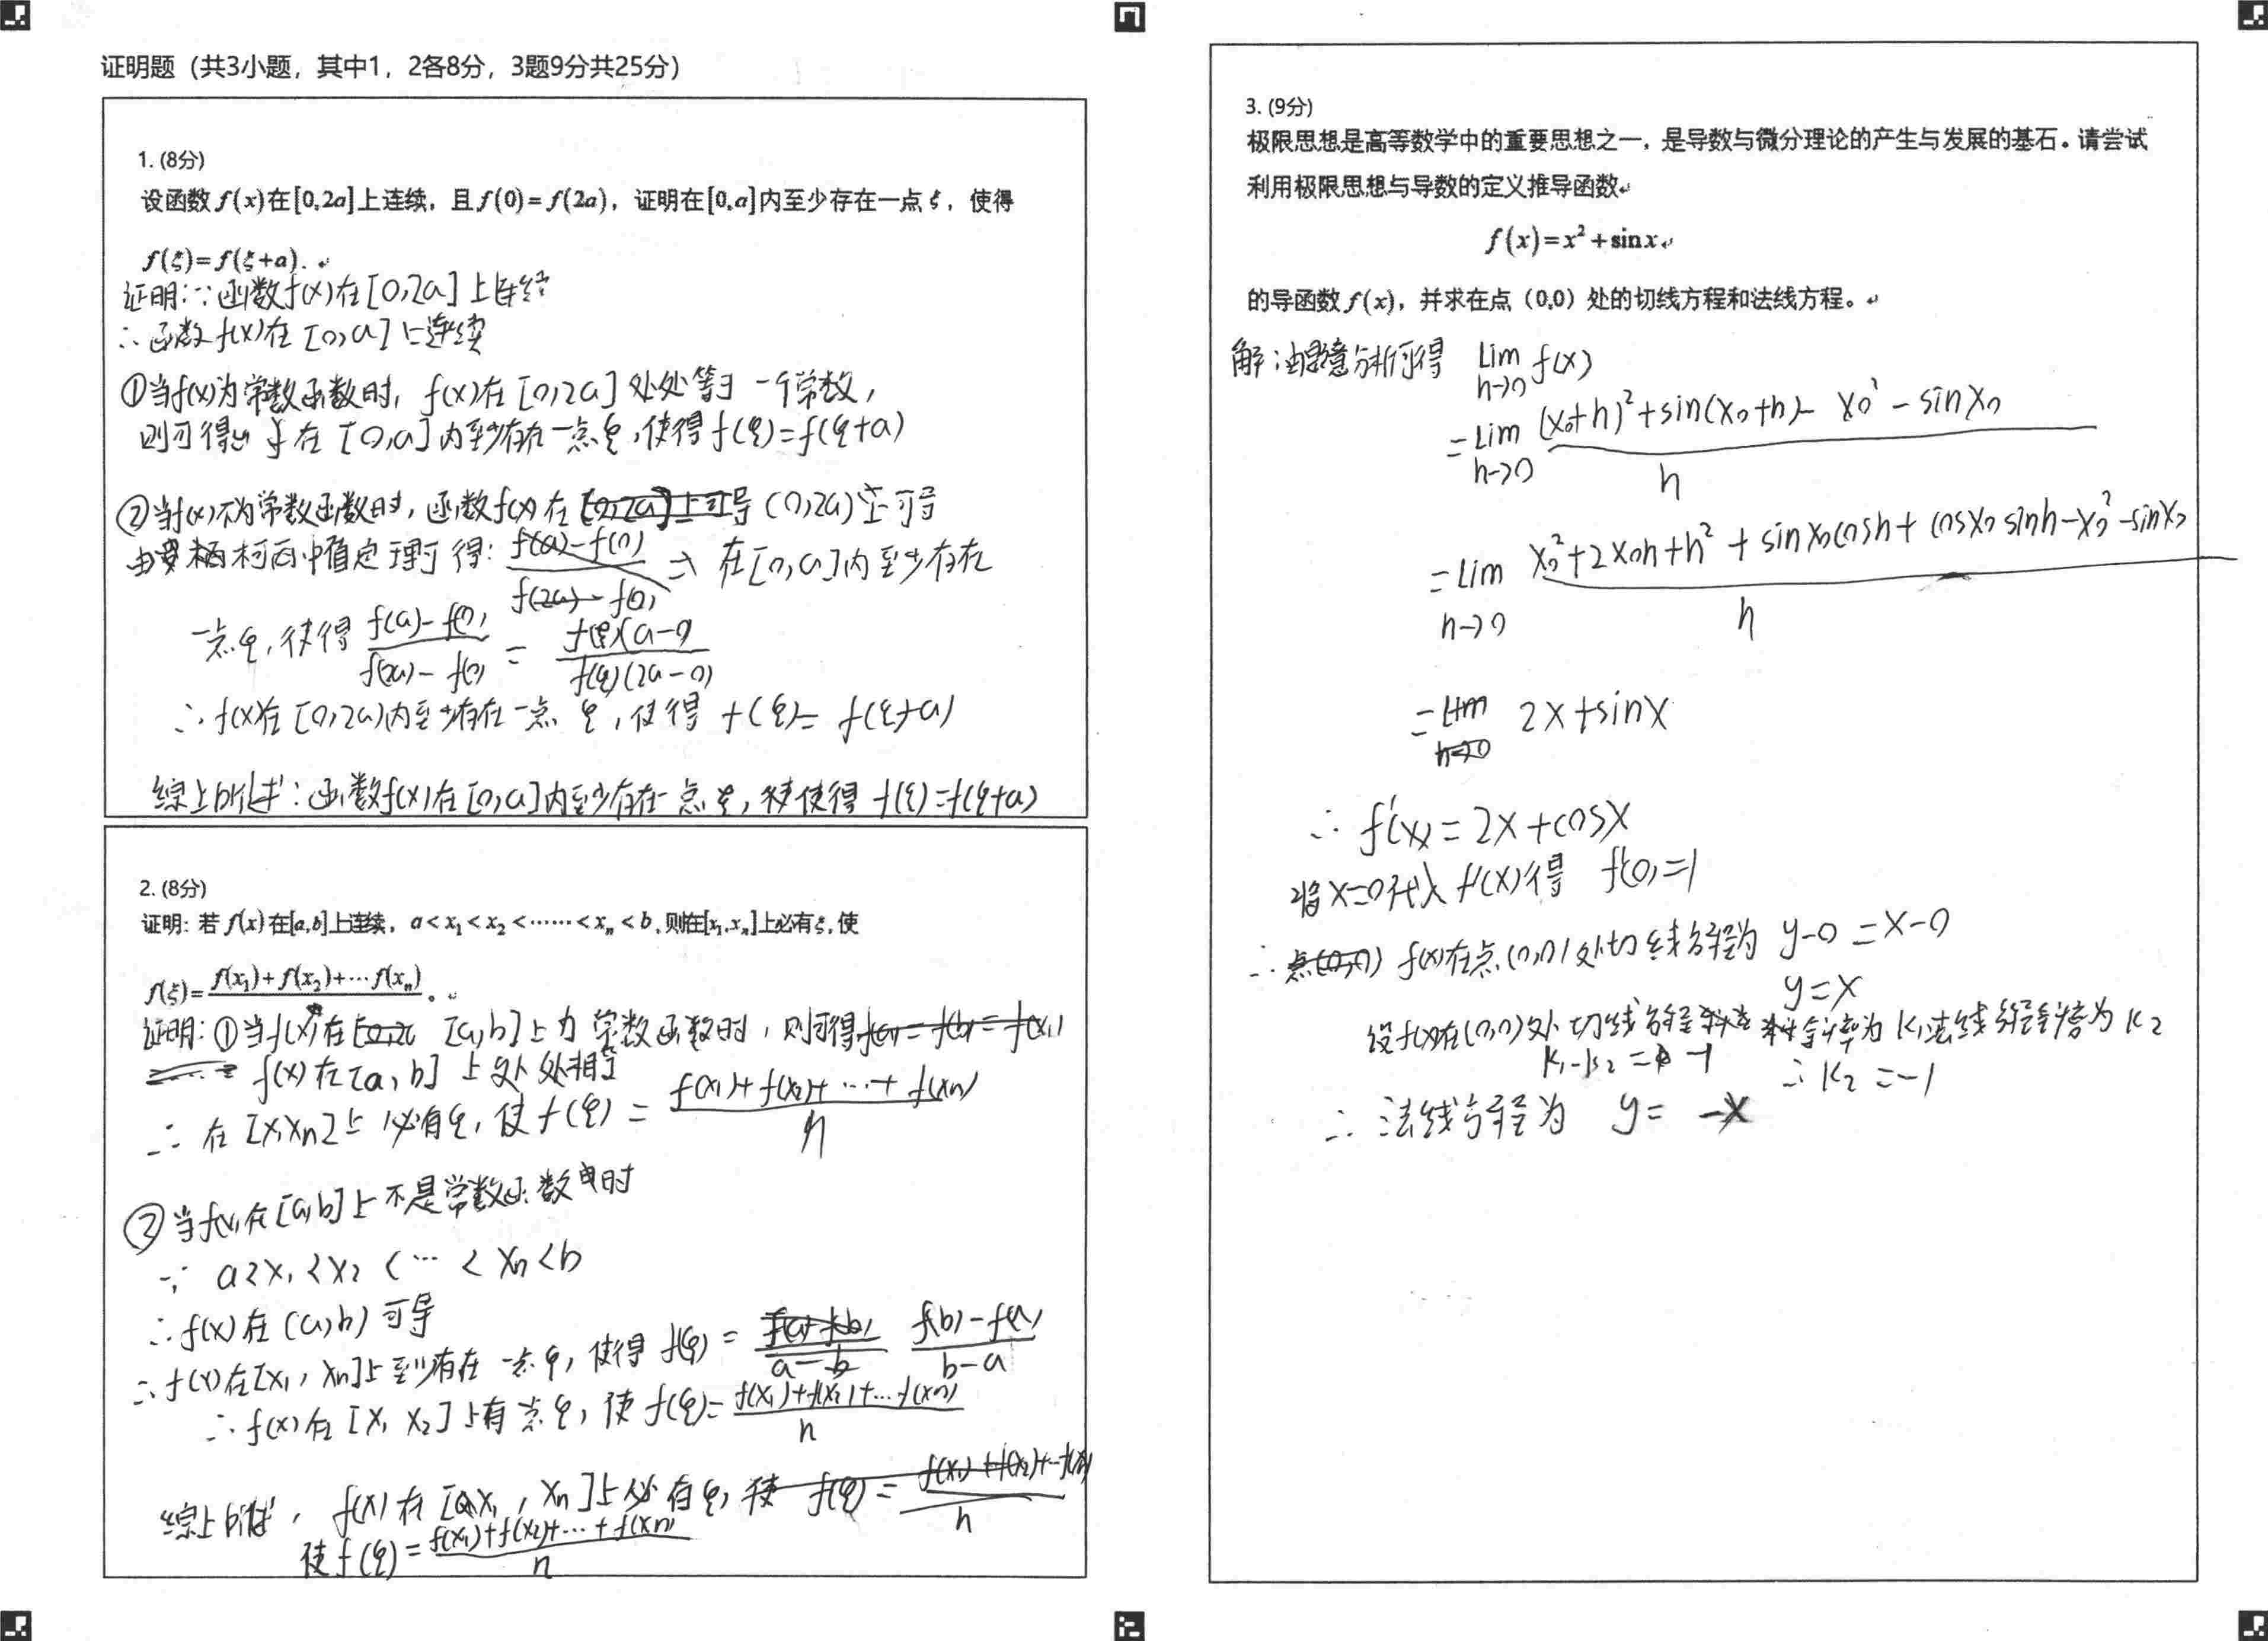 证明题（共3小题，其中1，2各8分，3题9分共25分）
1. (8分)
设函数 f(x) 在 [0,2a] 上连续，且 f(0) = f(2a)，证明在 [0,a] 内至少存在一点 ξ，使得
f(ξ) = f(ξ+a).
证明:∵函数f(x)在[0,2a]上连续
∴函数f(x)在[0,a]上连续
①当f(x)为常数函数时, f(x)在[0,2a]处处等于一个常数,
则可得出 在[0,a]内至少存在一点ξ,使得f(ξ)=f(ξ+a)
②当f(x)不为常数函数时, 函数f(x)在 (0,2a)上可导
由 柯西中值定理可得: ⇒ 在[0,a]内至少存在
一点ξ, 使得 (f(a)-f(0))/(f(2a)-f(0)) = f(ξ)(a-0)/f(ξ)(2a-0)
∴ f(x)在[0,2a)内至少存在一点ξ, 使得 f(ξ)= f(ξ+a)
综上所述: 函数f(x)在[0,a]内至少存在一点ξ, 使得 f(ξ)=f(ξ+a)
2. (8分)
证明: 若 f(x) 在[a,b]上连续, a < x₁ < x₂ < …… < xₙ < b, 则在[x₁,xₙ]上必有ξ, 使
f(ξ) = f(x₁) + f(x₂) + ⋯ f(xₙ)。
证明: ①当f(x)在 [a,b]上为常数函数时, 则可得
f(x)在[a,b]上处处相等
∴ 在[x₁xₙ]上必有ξ, 使f(ξ) = (f(x₁)+f(x₂)+…+f(xₙ))/n
②当f(x)在[a,b]上不是常数函数时
∵ a<x₁<x₂<…<xₙ<b
∴f(x)在(a,b)可导
∴f(x)在[x₁, xₙ]上至少存在一点ξ, 使得 f(ξ) = (f(b)-f(a))/(b-a)
∴f(x)在[x₁ x₂]上有一点ξ, 使f(ξ)= (f(x₁)+f(x₂)+…f(xₙ))/n
综上所述, f(x)在[x₁, xₙ]上必有ξ,
使f(ξ)= (f(x₁)+f(x₂)+…+f(xₙ))/n
3. (9分)
极限思想是高等数学中的重要思想之一，是导数与微分理论的产生与发展的基石。请尝试
利用极限思想与导数的定义推导函数
f(x) = x² + sin x
的导函数 f(x)，并求在点（0,0）处的切线方程和法线方程。
解:由题意分析可得 lim h→0 f(x)
= lim h→0 ((x₀+h)²+sin(x₀+h)- x₀² - sinx₀)/h
= lim h→0 (x₀²+2x₀h+h²+sinx₀cosh+cosx₀sinh-x₀²-sinx₀)/h
= 2x+sinx
∴ f'(x)=2x+cosx
将x=0代入f'(x)得 f'(0)=1
∴ f(x)在点(0,0)处切线方程为 y-0=x-0
y=x
设f(x)在(0,0)处切线方程 斜率为k₁法线方程斜率为k₂
k₁-k₂= -1 ∴k₂=-1
∴ 法线方程为 y= -x